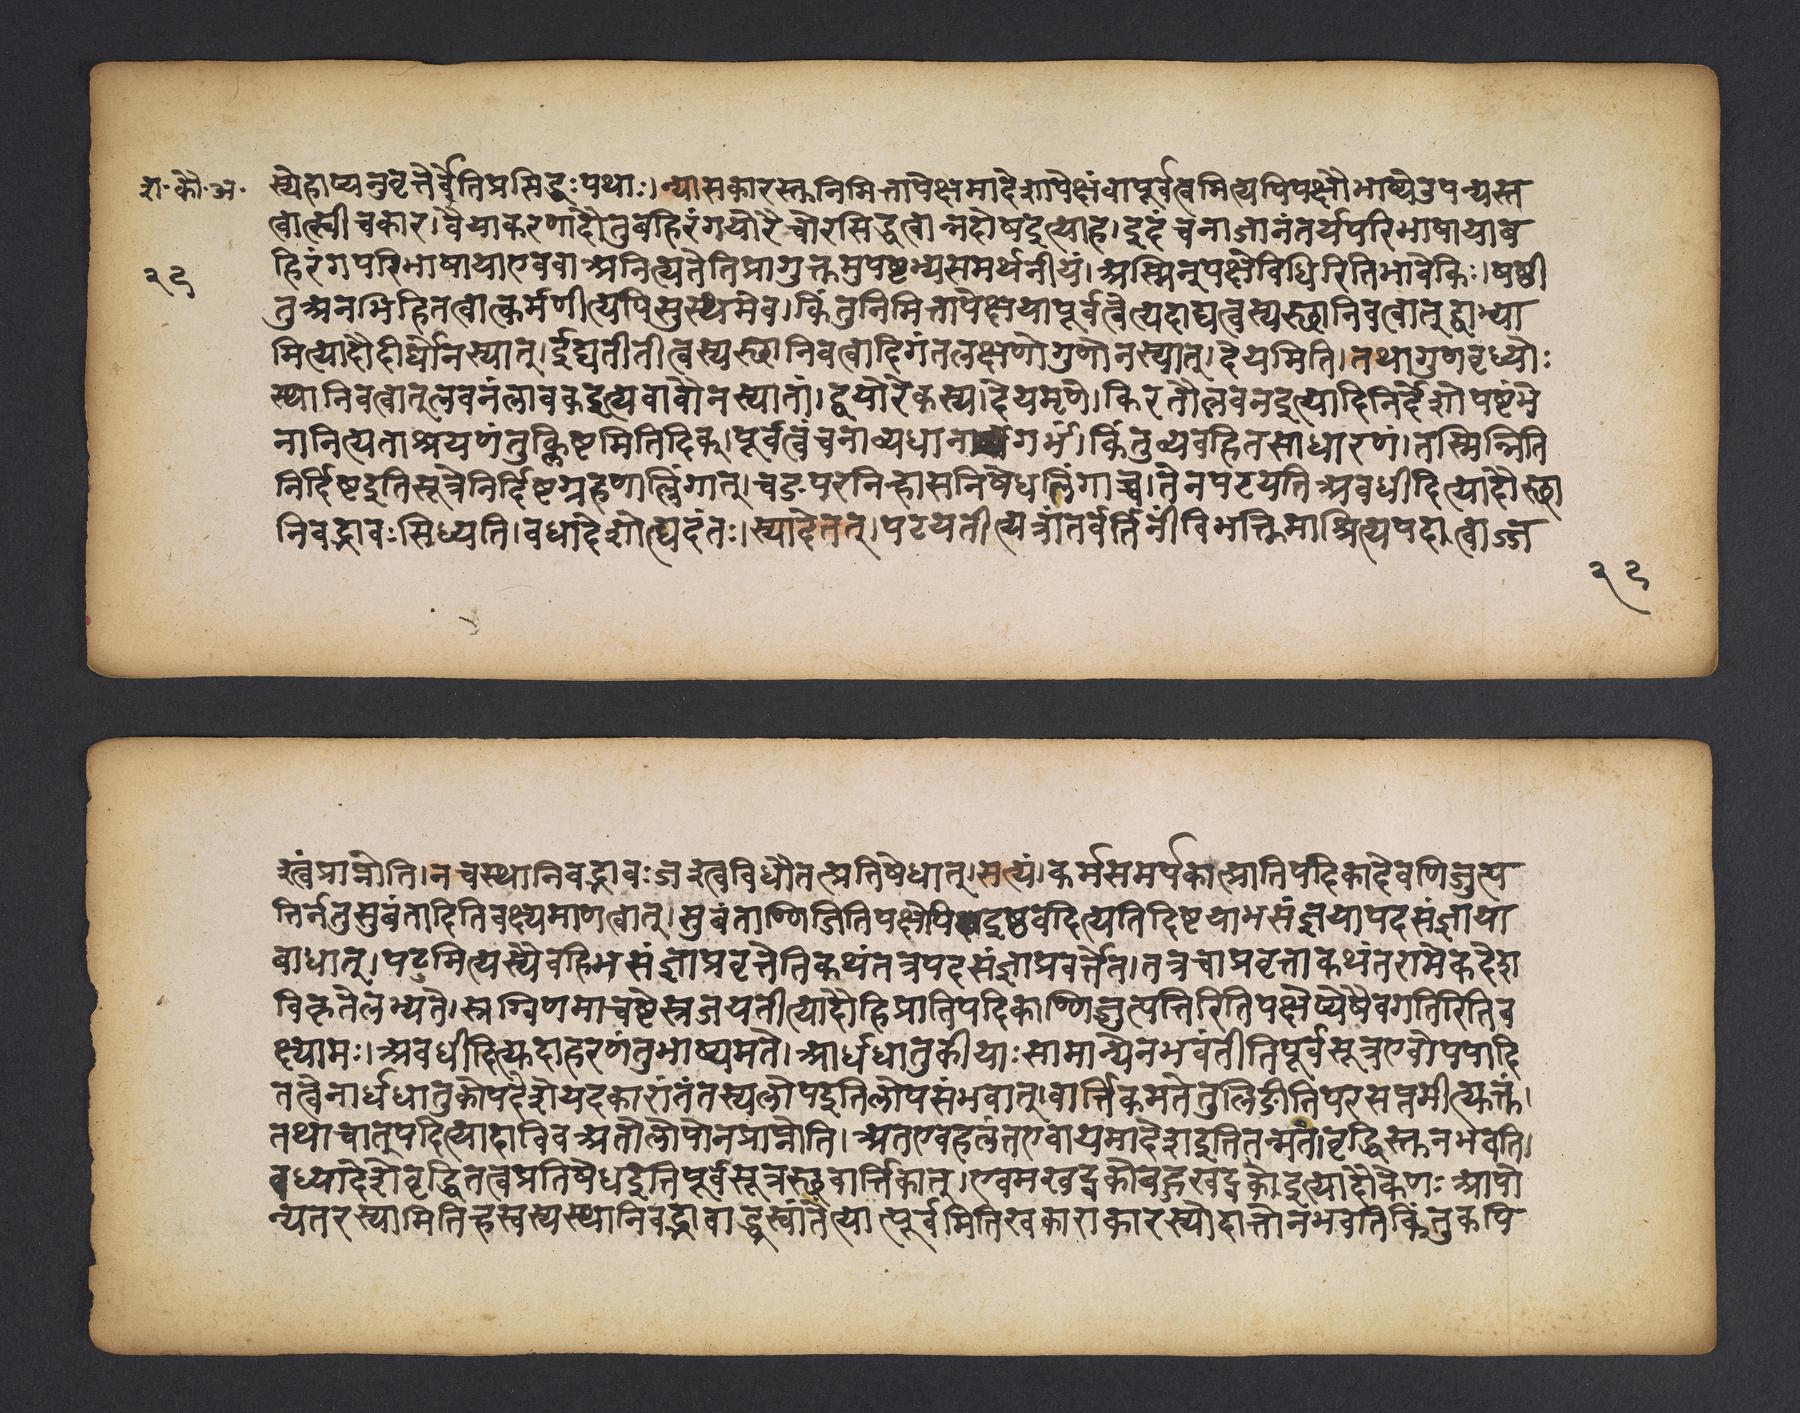 श·कौ·अ·
२९
स्येहाप्यनुवृत्तेर्वेतिप्रसिद्धःपथाः।न्यासकारस्तुनिमित्तापेक्षमादेशापेक्षंवापूर्वत्वमित्यपिपक्षौभाष्येउपन्यस्त
त्वात्स्वीचकार।वैयाकरणादौतुबहिरंगयोरैचोरसिद्धत्वान्नदोषइत्याह।इदंचनाजानंतर्यपरिभाषायाब
हिरंगपरिभाषायाएववाअनित्यतेतिप्रागुक्तमुपष्टभ्यसमर्थनीयं।अस्मिन्पक्षेविधिरितिभावेकिः।षष्ठी
तुअनभिहितत्वात्कर्मणीत्यपिसुस्थमेव।किंतुनिमित्तापेक्षयापूर्वत्वेत्यदाद्यत्वस्यस्थानिवत्वात्द्वाभ्या
मित्यादौदीर्घोनस्यात्।ईद्यतीतीत्वस्यस्थानिवत्वादिगंतलक्षणोगुणोनस्यात्।देयमिति।तथागुणवृध्योः
स्थानिवत्वात्लवनंलावकइत्यवावौनस्यातां।द्वयोरेकस्य।देयमृणे।किरतौलवनइत्यादिनिर्देशोपष्टंभे
नानित्यताश्रयणंतुक्लिष्टमितिदिक्।पूर्वत्वंचनाव्यधानगर्भं।किंतुव्यवहितसाधारणं।तस्मिन्निति
निर्दिष्टइतिसूत्रेनिर्दिष्टग्रहणाल्लिंगात्।चङ्परनिर्ह्रासनिषेधलिंगाच्च।तेनपटयतिअवधीदित्यादौस्था
निवद्भावःसिध्यति।वधादेशोत्द्यदंतः।स्यादेतत्।पटयतीत्यत्रांतर्वर्तिनींविभक्तिमाश्रित्यपदत्वाज्ज
२९
श्त्वंप्राप्नोति।नचस्थानिवद्भावःजश्त्वविधौतत्प्रतिषेधात्।सत्यं।कर्मसमर्पकात्प्रातिपदिकादेवणिजुत्प
त्तिर्नतुसुबंतादितिवक्ष्यमाणत्वात्।सुबंताण्णिजितिपक्षेपिइष्ठवदित्यतिदिष्टयाभसंज्ञयापदसंज्ञाया
बाधात्।पटुमित्यस्यैवहिभसंज्ञाप्रवृत्तेतिकथंतत्रपदसंज्ञाप्रवर्त्तेत।तत्रचाप्रवृत्ताकथंतरामेकदेश
विकृतेलभ्यते।स्रग्विणमाचष्टेस्रजयतीत्यादौहिप्रातिपदिकाण्णिजुत्पत्तिरितिपक्षेप्येषैवगतिरितिव
क्ष्यामः।अवधीदित्युदाहरणंतुभाष्यमते।आर्धधातुकीयाःसामान्येनभवंतीतिपूर्वसूत्रएवोपपादि
तत्वेनार्धधातुकोपदेशेयदकारांतंतस्यलोपइतिलोपसंभवात्।वार्त्तिकमतेतुलिङीतिपरसप्तमीत्युक्तं।
तथाचात्पदित्यादाविवअतोलोपोनप्राप्नोति।अतएवहलंतएवायमादेशइतितन्मते।वृद्धिस्तुनभवति।
वध्यादेशेवृद्धितत्वप्रतिषेधइतिपूर्वसूत्रस्थवार्त्तिकात्।एवमखद्वकोबहुखद्वकोइत्यादौकेणःआपो
न्यतरस्यामितिह्रस्वस्यस्थानिवद्भावाद्ध्रस्वांतेत्यात्पूर्वमितिखकाराकारस्योदात्तोनभवतिकिंतुकपि